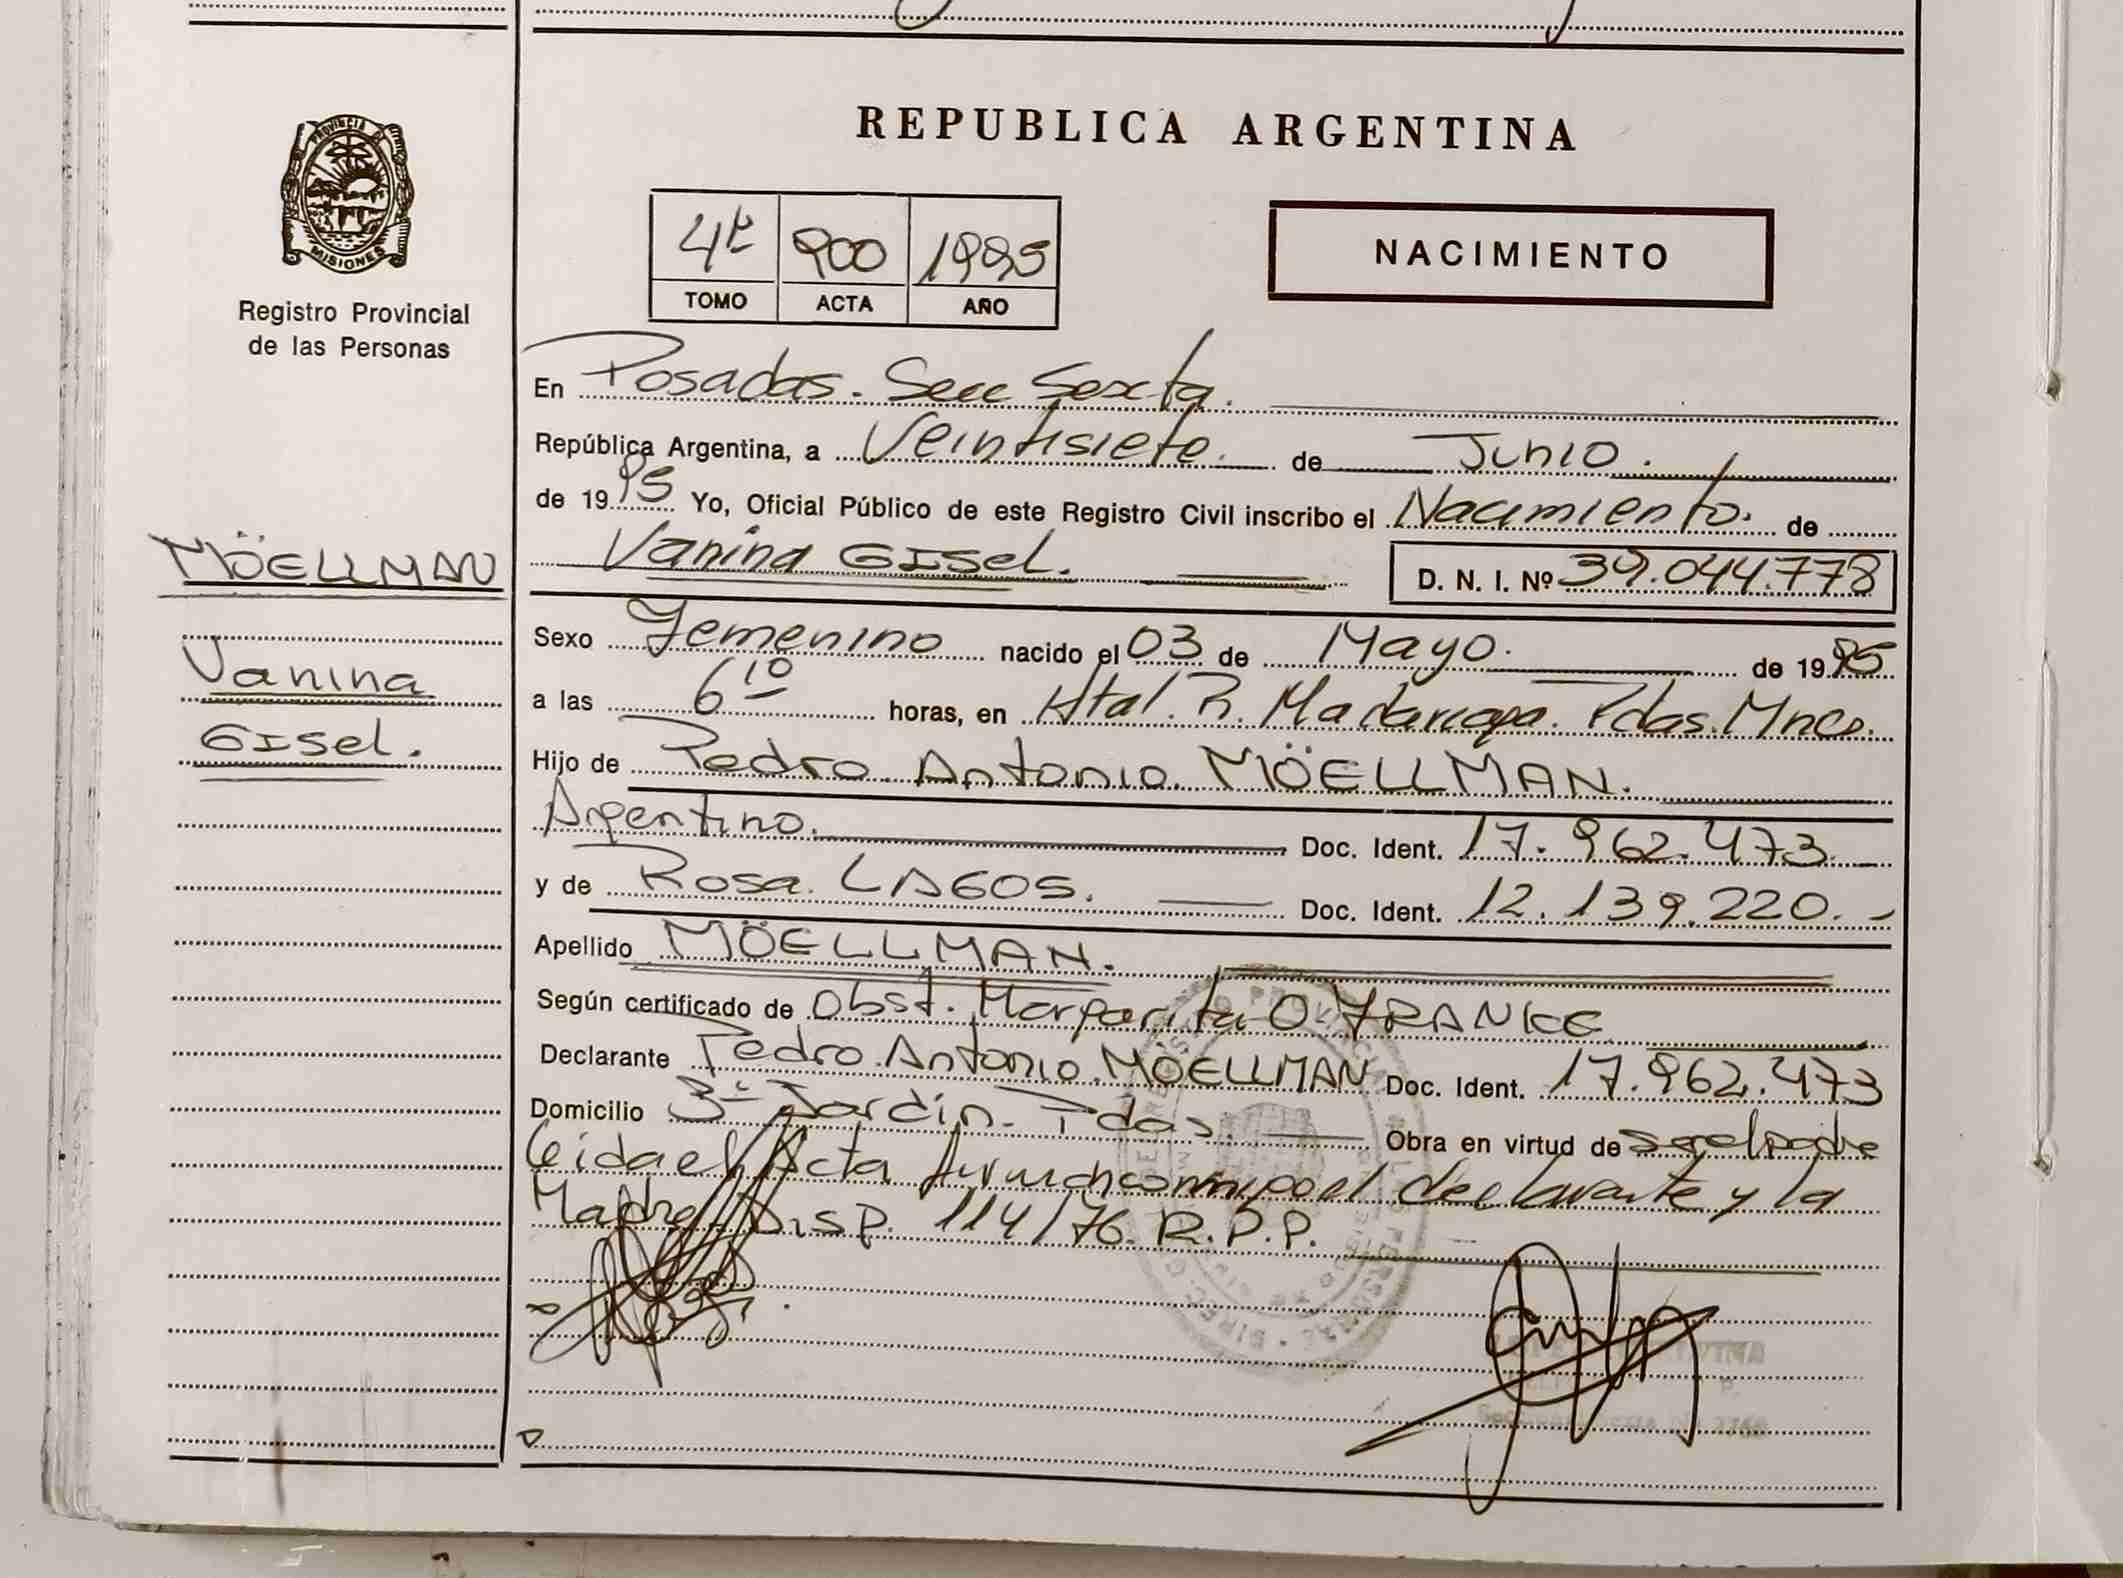 REPUBLICA ARGENTINA
PROVINCIA DE MISIONES
Registro Provincial
de las Personas
4º 900 1995
TOMO ACTA AÑO
NACIMIENTO
En Posadas. Secc Sexta.
República Argentina, a Veintisiete. de Junio.
de 1995 Yo, Oficial Público de este Registro Civil inscribo el Nacimiento. de
Vanina GISel. D. N. I. Nº 39.044.778
MÖELLMAN
Vanina
GISel.
Sexo Femenino nacido el 03 de Mayo. de 1995
a las 6 10 horas, en Htal. R. Madariaga. Pdas. Mnes.
Hijo de Pedro Antonio MÖELLMAN.
Argentino. Doc. Ident. 17.962.473.
y de Rosa LAGOS. Doc. Ident. 12.139.220.-
Apellido MÖELLMAN.
Según certificado de Obst. Margarita O FRANKE
Declarante Pedro Antonio MÖELLMAN Doc. Ident. 17.962.473
Domicilio Jardín. Pdas. Obra en virtud de ser el padre
Leida el Acta firman conmigo el declarante y la
Madre Disp. 114/76. R.P.P.